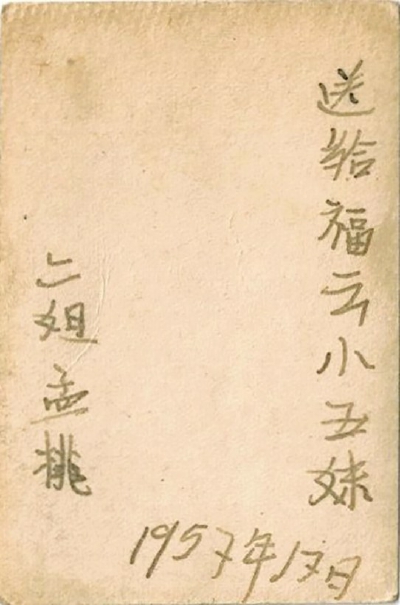 送给福云小五妹
二姐孟桃
1957年1月日